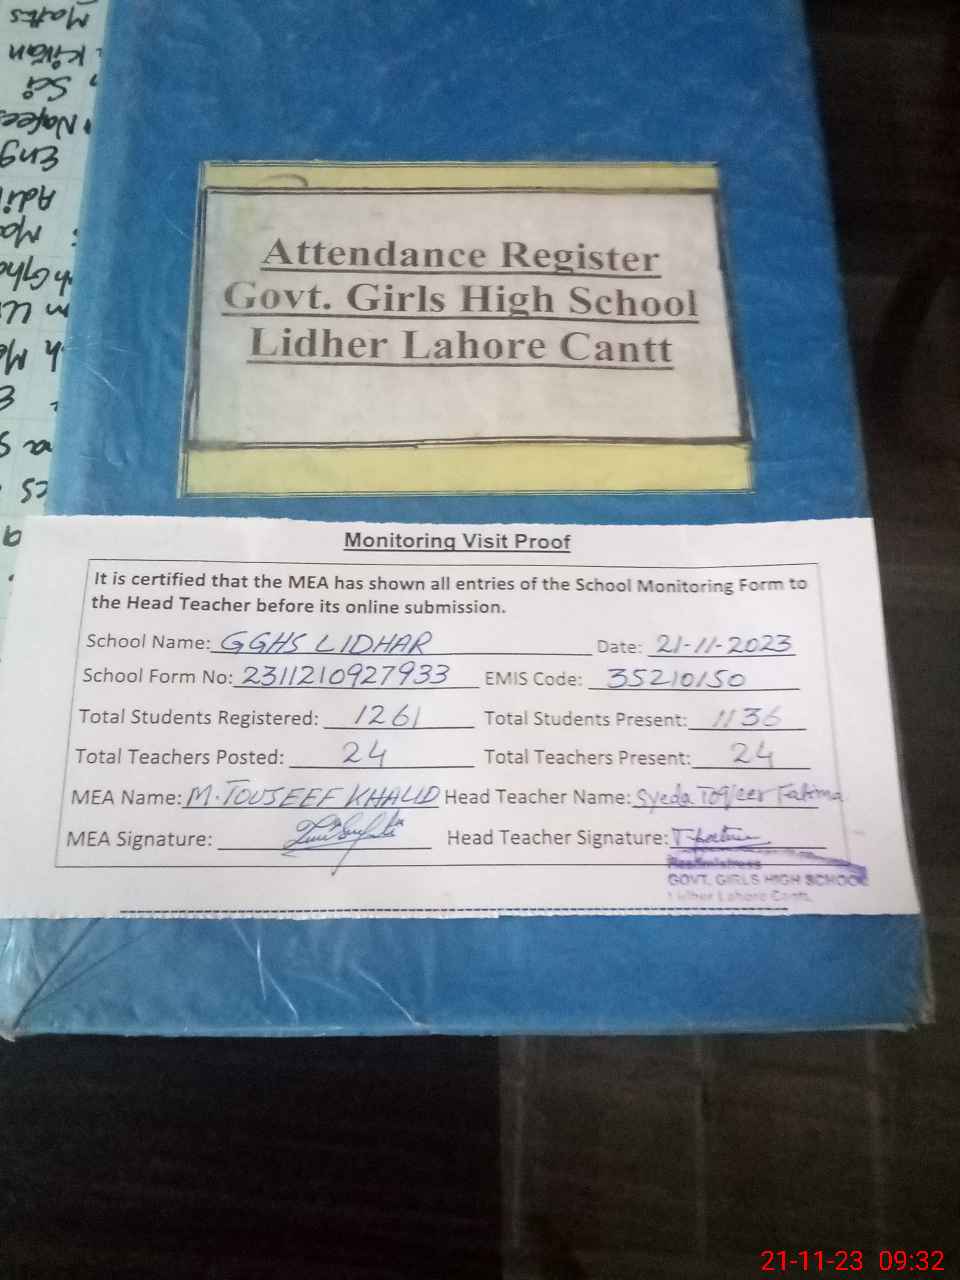 Attendance Register
Govt. Girls High School
Lidher Lahore Cantt
Monitoring Visit Proof
It is certified that the MEA has shown all entries of the School Monitoring Form to
the Head Teacher before its online submission.
School Name: GGHS LIDHAR Date: 21-11-2023
School Form No: 2311210927933 EMIS Code: 35210150
Total Students Registered: 1261 Total Students Present: 1136
Total Teachers Posted: 24 Total Teachers Present: 24
MEA Name: M. TOUSEEF KHALID Head Teacher Name: Syeda Toqeer Fatima
MEA Signature: Head Teacher Signature:
Headmistress
GOVT. GIRLS HIGH SCHOOL
Lidher Lahore Cantt.
Matts
Kiran
Sci
Nafees
Eng
21-11-23 09:32